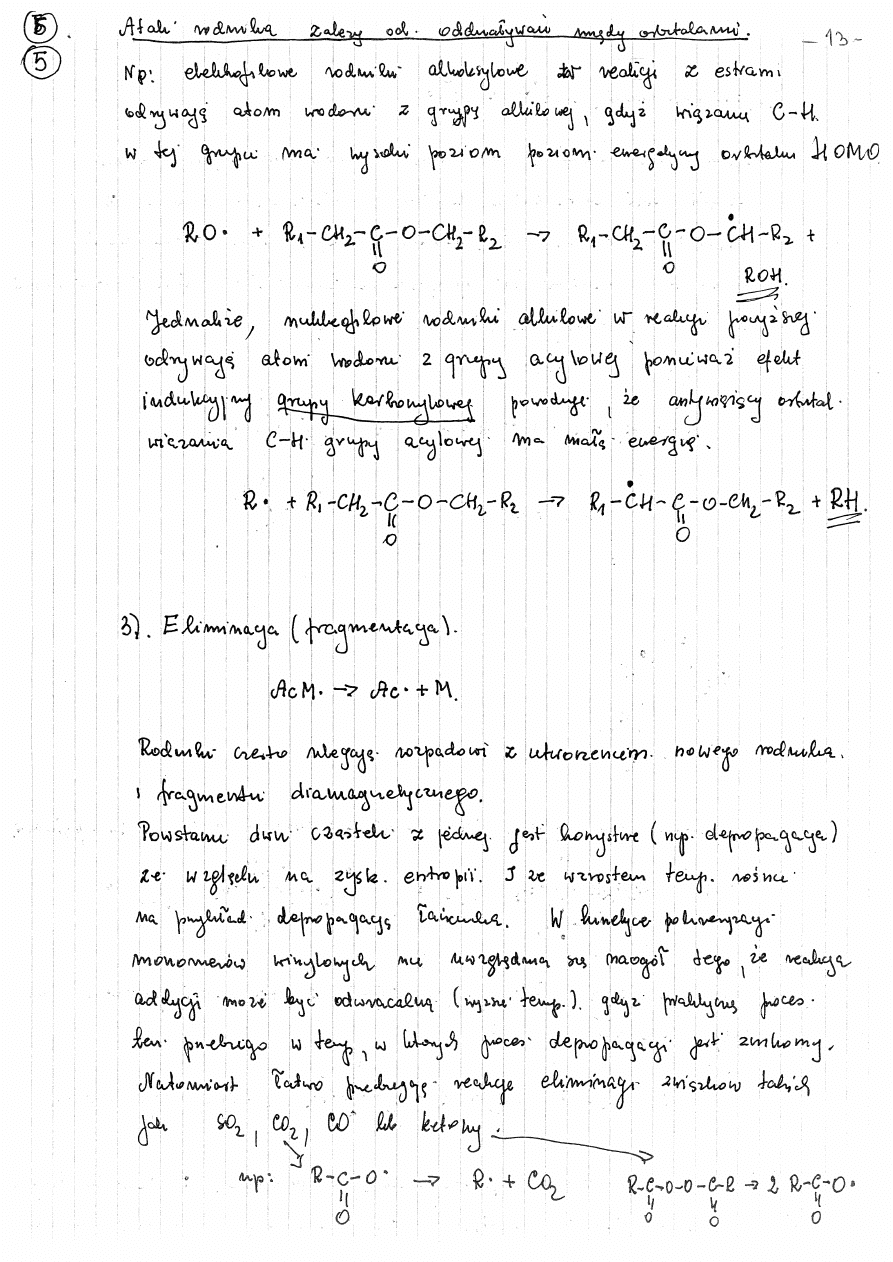 5. Atak rodnika zależy od oddziaływań między orbitalami. - 13 -
5
Np: elektrofilowe rodniki alkoksylowe w reakcji z estrami
odrywają atom wodoru z grupy alkilowej, gdyż wiązanie C-H
w tej grupie ma wysoki poziom poziom energetyczny orbitalu HOMO
RO• + R₁-CH₂-C-O-CH₂-R₂ → R₁-CH₂-C-O-ĊH-R₂ +
O O ROH.
Jednakże, nukleofilowe rodniki alkilowe w reakcji powyższej
odrywają atom wodoru z grupy acylowej ponieważ efekt
indukcyjny grupy karbonylowej powoduje, że antywiążący orbital
wiązania C-H grupy acylowej ma małą energię.
R• + R₁-CH₂-C-O-CH₂-R₂ → R₁-ĊH-C-O-CH₂-R₂ + RH.
O O
3). Eliminacja (fragmentacja).
AcM• → Ac• + M.
Rodniki często ulegają rozpadowi z utworzeniem nowego rodnika
i fragmentu diamagnetycznego.
Powstanie dwu cząstek z jednej jest korzystne (np. depropagacja)
ze względu na zysk entropii. I ze wzrostem temp. rośnie
na przykład depropagacja łańcucha. W kinetyce polimeryzacji
monomerów winylowych nie uwzględnia się naogół tego, że reakcja
addycji może być odwracalna (wyższe temp.). gdyż praktycznie proces
ten przebiega w temp, w których proces depropagacji jest znikomy.
Natomiast łatwo przebiegają reakcje eliminacji związków takich
jak SO₂, CO₂, CO lub ketony.
np: R-C-O• → R• + CO₂ R-C-O-O-C-R → 2 R-C-O•
O O O O